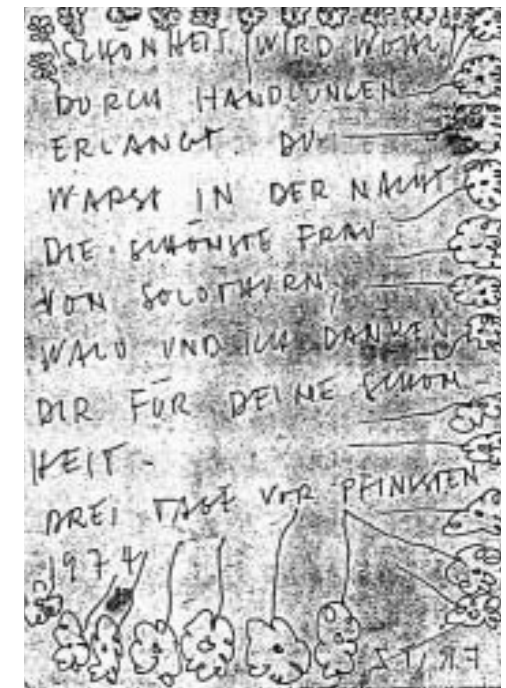 SCHÖNHEIT WIRD WOHL
DURCH HANDLUNGEN
ERLANGT. DU
WARST IN DER NACHT
DIE SCHÖNSTE FRAU
VON SOLOTHURN,
WALO UND ICH DANKEN
DIR FÜR DEINE SCHÖN-
HEIT-
DREI TAGE VOR PFINGSTEN
1974